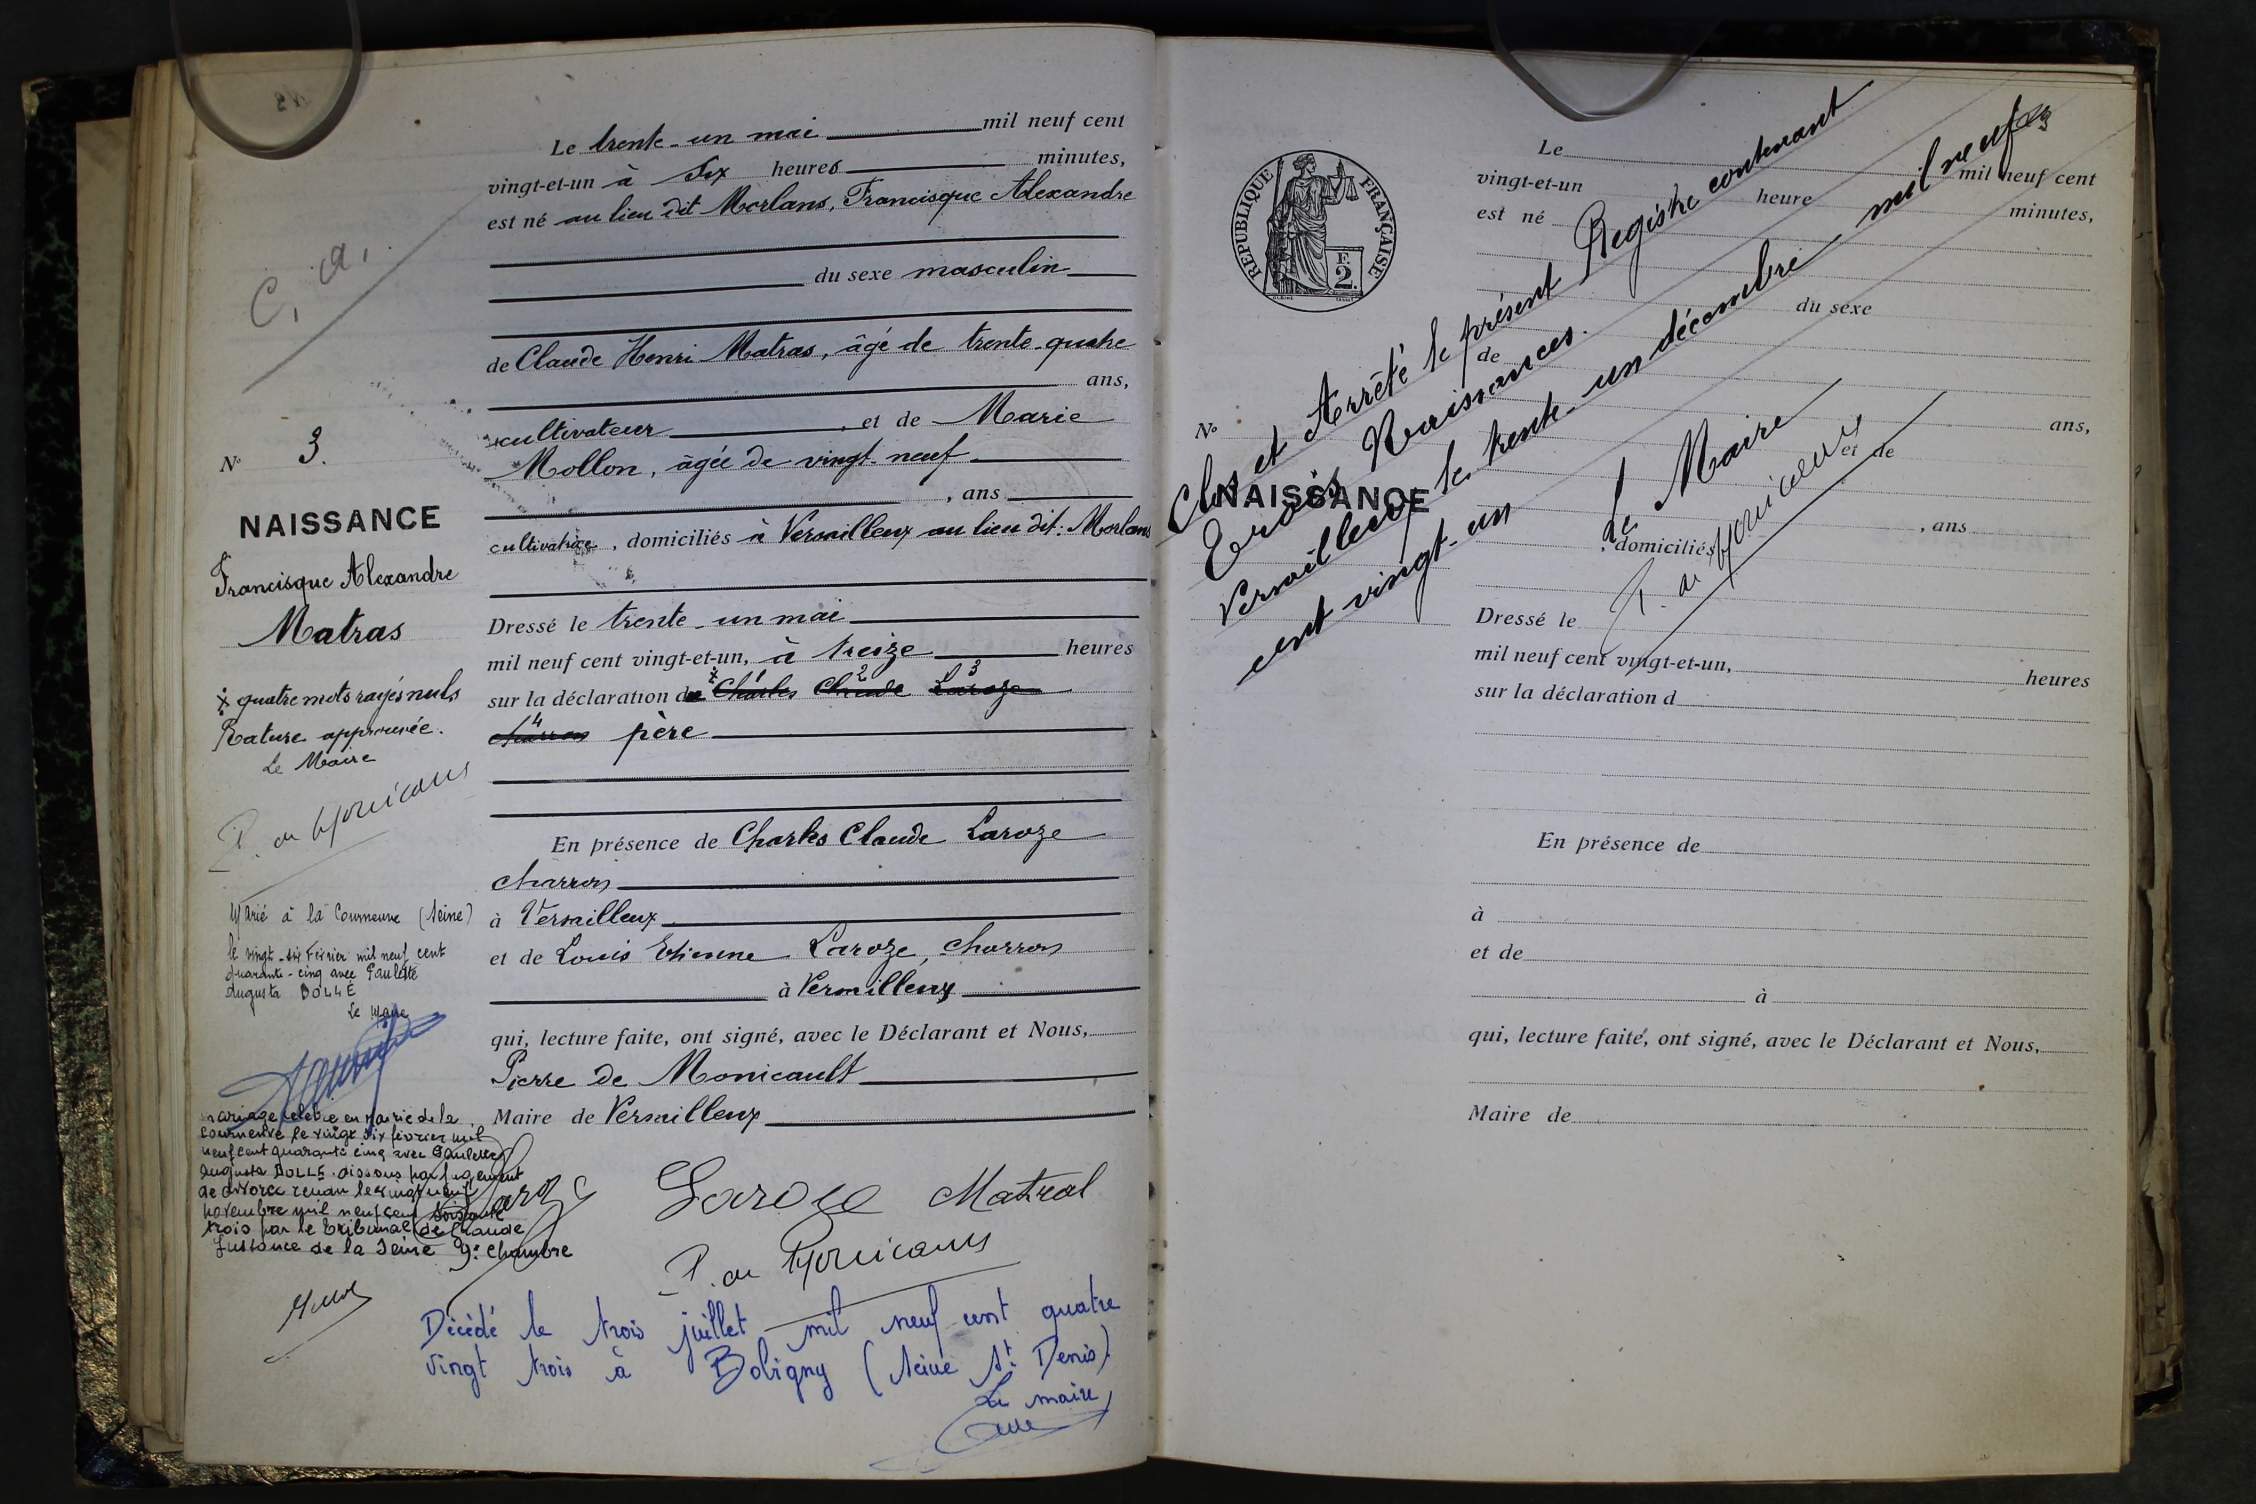 C. a.
N° 3.
NAISSANCE
Francisque Alexandre
Matras
quatre mots rayés nuls
Rature approuvée.
Le Maire
Marié à la Courneuve (Seine)
le vingt-six Février mil neuf cent
quarante-cinq avec Paulette
Augusta DOLLÉ
Le Maire
Mariage célébré en Mairie de la
Courneuve le vingt six février mil
neuf cent quarante cinq avec Paulette
Augusta DOLLÉ. dissous par jugement
de divorce rendu le vingt neuf
novembre mil neuf cent soixante
trois par le Tribunal de Grande
Instance de la Seine 9e Chambre
Le trente-un mai mil neuf cent
vingt-et-un à six heures minutes,
est né au lieu dit Morlans, Francisque Alexandre
du sexe masculin
de Claude Henri Matras, âgé de trente-quatre
ans,
cultivateur, et de Marie
Mollon, âgée de vingt-neuf
, ans
cultivatrice, domiciliés à Versailleux au lieu dit: Morlans
Dressé le trente-un mai
mil neuf cent vingt-et-un, à treize heures
sur la déclaration de Charles Claude Laroze
1 2 3
4
charron père
En présence de Charles Claude Laroze
charron
à Versailleux
et de Louis Etienne Laroze, charron
à Versailleux
qui, lecture faite, ont signé, avec le Déclarant et Nous,
Pierre de Monicault
Maire de Versailleux
Laroze
Laroze Matras
P. de Monicault
Décédé le trois juillet mil neuf cent quatre
vingt trois à Bobigny (Seine St Denis)
Le maire
RÉPUBLIQUE FRANÇAISE
F.
2.
Clos et Arrêté le présent Registre contenant
Trois Naissances.
Versailleux le trente-un décembre mil neuf
cent vingt-un
Le Maire
P. de Monicault
N°
NAISSANCE
Le mil neuf cent
vingt-et-un heure minutes,
est né
du sexe
de
ans,
et de
, ans
, domiciliés
Dressé le
mil neuf cent vingt-et-un, heures
sur la déclaration d
En présence de
à
et de
à
qui, lecture faite, ont signé, avec le Déclarant et Nous,
Maire de